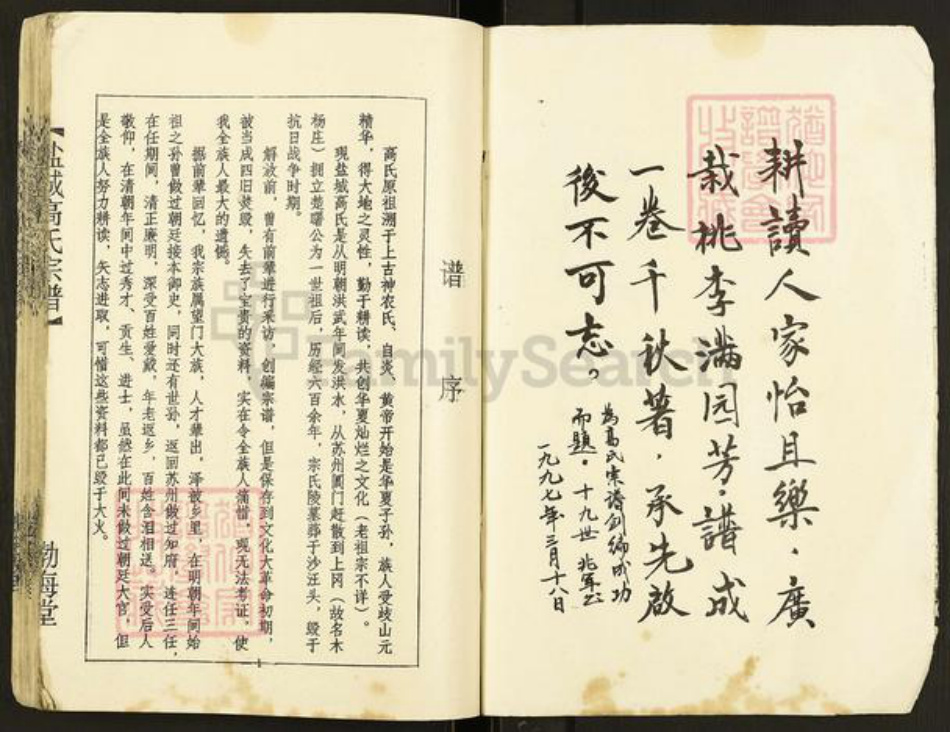 耕讀人家怡且樂．廣
栽桃李满园芳．譜成
一卷千秋著．承先啟
後不可忘。
为高氏宗谱创编成功
而题．十九世兆军书
一九九七年三月十八日
谱序
高氏原祖溯于上古神农氏、自炎、黄帝开始是华夏子孙，族人受歧山元
精华，得大地之灵性，勤于耕读，共创华夏灿烂之文化（老祖宗不详）。
现盐城高氏是从明朝洪武年间发洪水，从苏州阊门赶散到上冈（故名木
杨庄）拥立楚曙公为一世祖后，历经六百余年，宗氏陵墓葬于沙汪头，毁于
抗日战争时期。
解放前，曾有前辈进行采访，创编宗谱，但是保存到文化大革命初期，
被当成四旧焚毁，失去了宝贵的资料，实在令全族人痛惜，现无法考证，使
我全族人最大的遗憾。
据前辈回忆，我宗族属望门大族，人才辈出，泽被乡里，在明朝年间始
祖之孙曾做过朝廷接本御史，同时还有世孙，返回苏州做过知府，连任三任，
在任期间，清正廉明，深受百姓爱戴，年老返乡，百姓含泪相送。实受后人
敬仰，在清朝年间中过秀才、贡生、进士，虽然在此间未做过朝廷大官，但
是全族人努力耕读，矢志进取，可惜这些资料都已毁于大火。
1
【盐城高氏宗谱】
渤海堂
FamilySearch